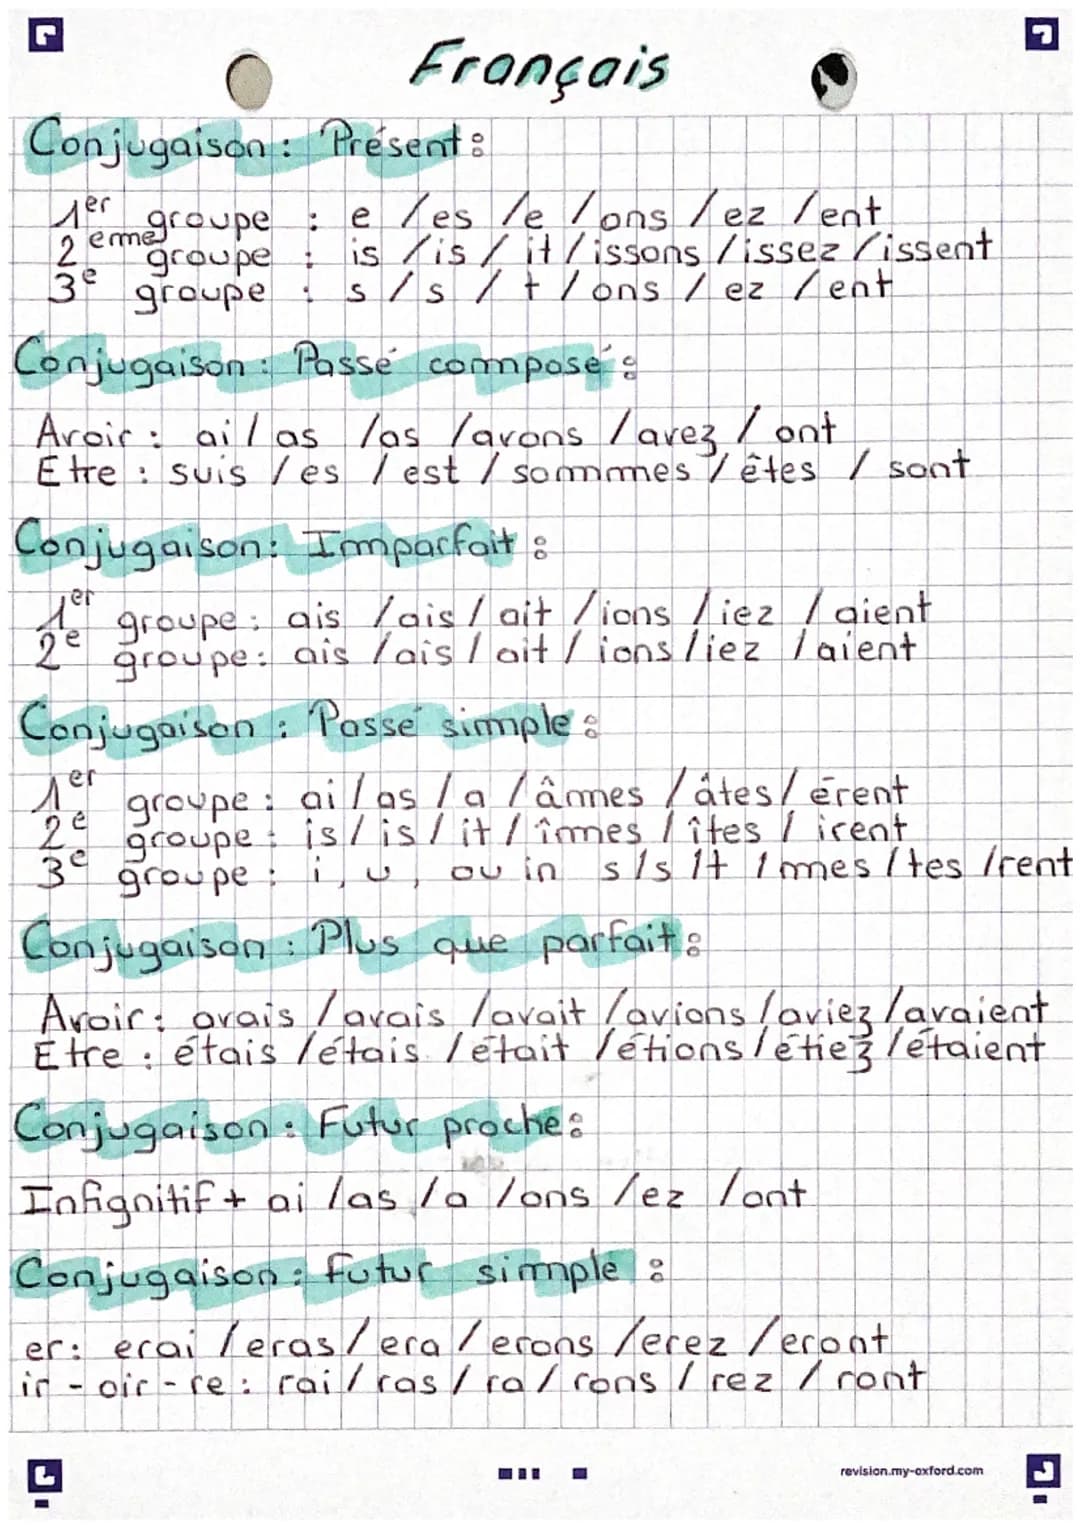 Français
Conjugaison : Présent :
1er groupe : e /es /e /ons /ez /ent
2eme groupe : is /is / it / issons /issez /issent
3e groupe : s / s / t / ons / ez / ent
Conjugaison : Passé composé :
Avoir : ai / as /as /avons /avez / ont
Etre : suis /es / est / sommmes / êtes / sont
Conjugaison : Imparfait :
1er groupe : ais /ais / ait /ions /iez /aient
2e groupe : ais /ais / ait / ions /iez /aient
Conjugaison : Passé simple :
1er groupe : ai / as / a /âmes /âtes / èrent
2e groupe : is / is / it / îmes / îtes / irent
3e groupe : i, u, ou in s/s /t /mes /tes /rent
Conjugaison : Plus que parfait :
Avoir : avais /avais /avait /avions /aviez /avaient
Etre : étais /étais /était /étions /étiez /étaient
Conjugaison : Futur proche :
Infignitif + ai /as /a /ons /ez /ont
Conjugaison : futur simple :
er : erai /eras / era / erons /erez /eront
ir - oir - re : rai / ras / ra / rons / rez / ront
revision.my-oxford.com